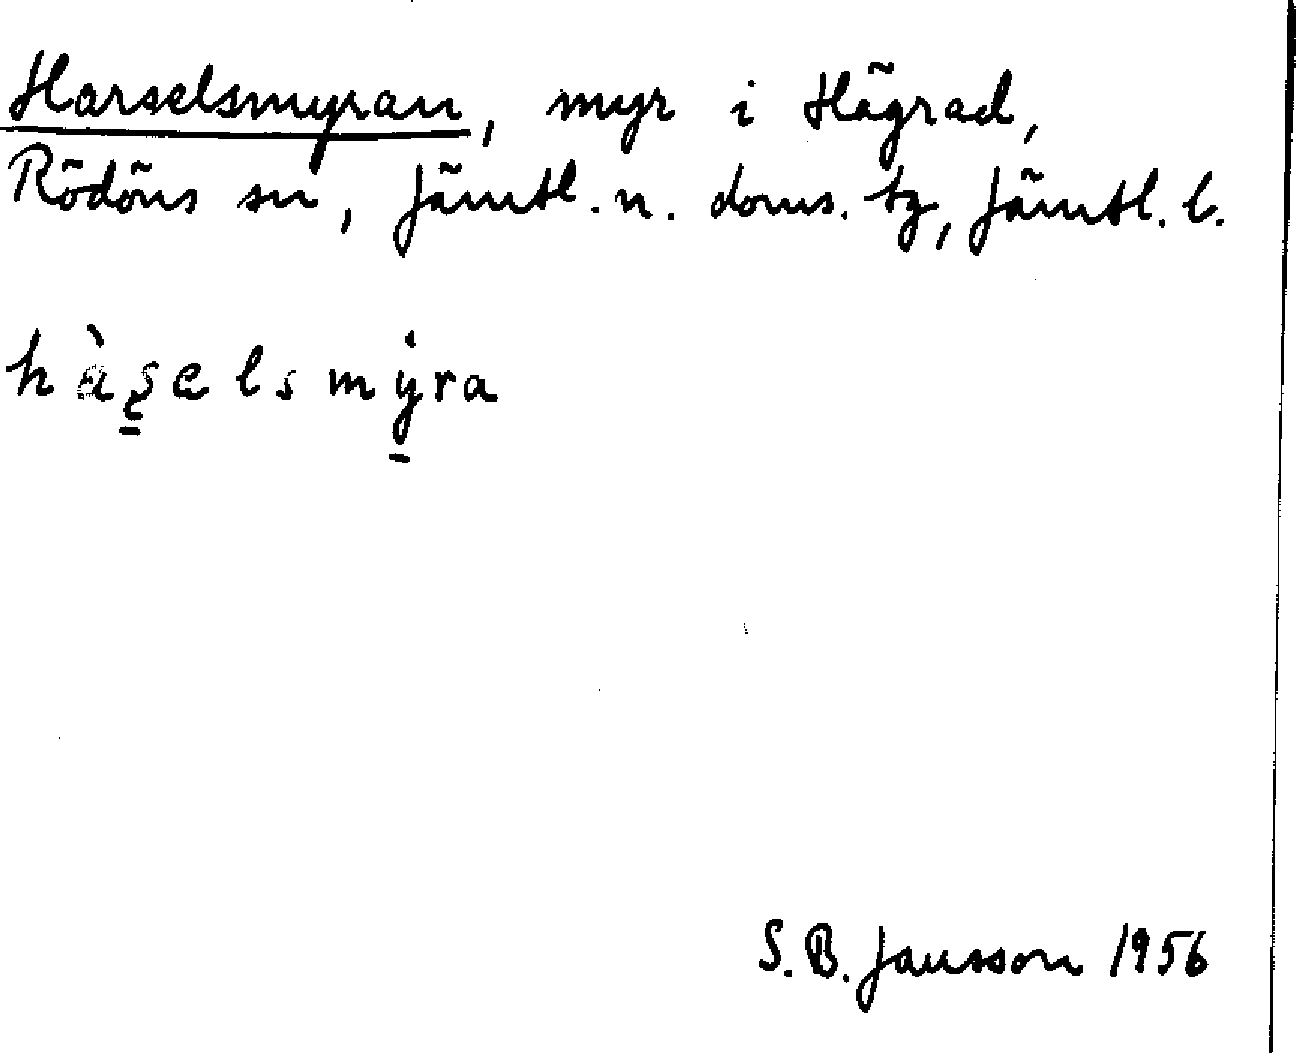 Harselsmyran, myr i Hägrad,
Rödöns sn, Jämtl. n. doms. tg, Jämtl. l.
hàʂelsmýra
S. B. Jansson 1956